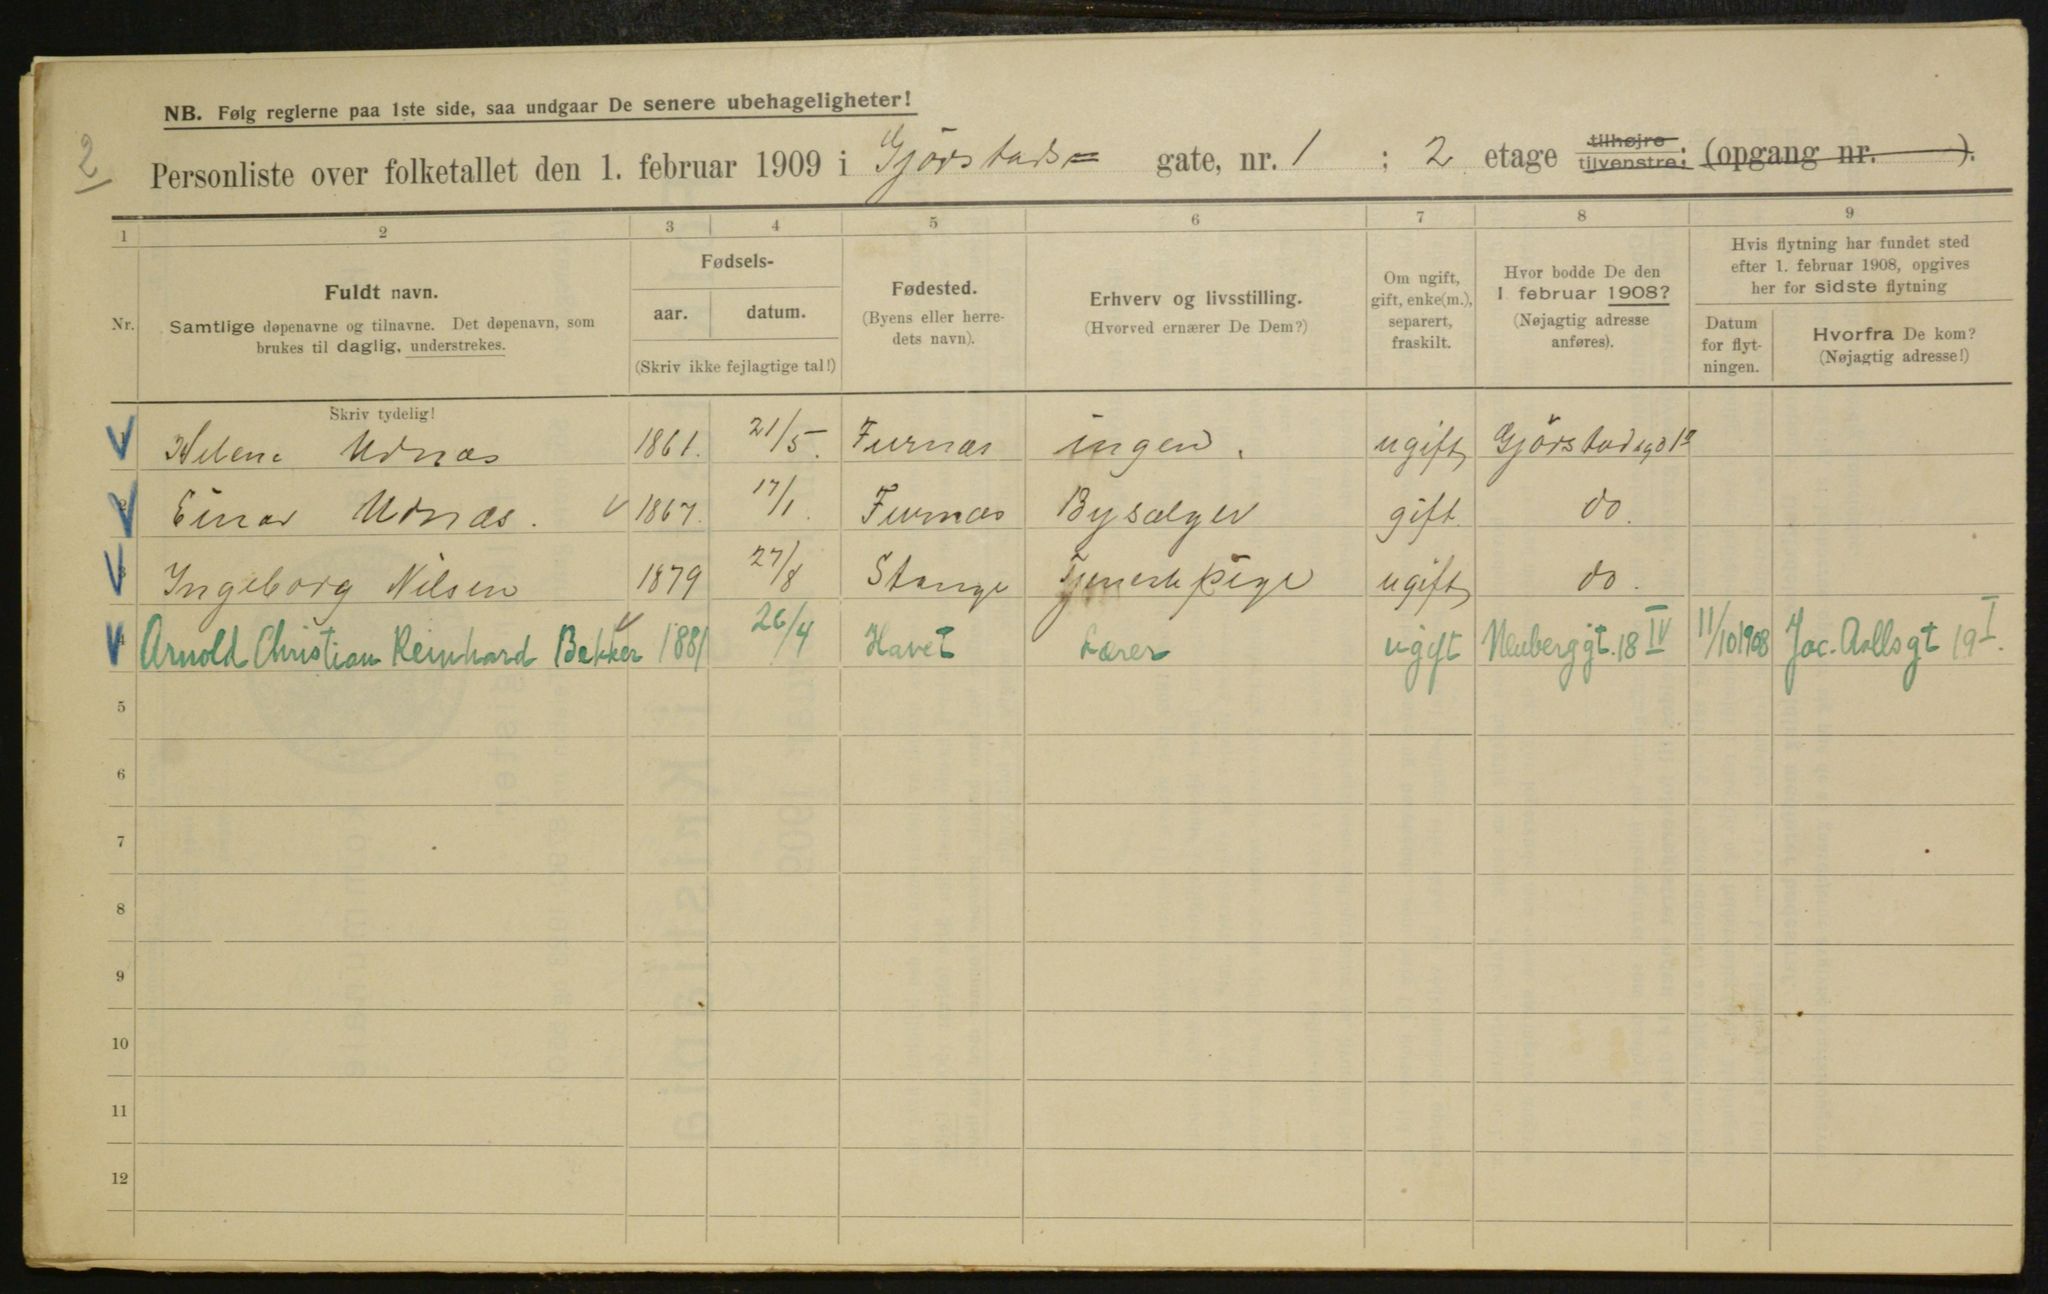 NB. Følg reglerne paa 1ste side, saa undgaar De senere ubehageligheter!
2
Personliste over folketallet den 1. februar 1909 i Gjörstads= gate, nr. 1 ; 2 etage tilhøjre tilvenstre; (opgang nr. ).
1 2 3 4 5 6 7 8 9
Nr.
Fuldt navn.
Samtlige døpenavne og tilnavne. Det døpenavn, som
brukes til daglig, understrekes.
Fødsels-
aar. datum.
(Skriv ikke fejlagtige tal!)
Fødested.
(Byens eller herre-
dets navn).
Erhverv og livsstilling.
(Hvorved ernærer De Dem?)
Om ugift,
gift, enke(m.),
separert,
fraskilt.
Hvor bodde De den
1. februar 1908?
(Nøjagtig adresse
anføres).
Hvis flytning har fundet sted
efter 1. februar 1908, opgives
her for sidste flytning
Datum
for flyt-
ningen.
Hvorfra De kom?
(Nøjagtig adresse!)
Skriv tydelig!
1 Helene Udnæs 1861. 21/5. Furnæs ingen. ugift
2 Einar Udnæs. 1867. 17/1. Furnæs Bysælger gift. do.
3 Ingeborg Nilsen 1879 27/8 Stange Tjenestepige ugift do.
4 Arnold Christian Reinhard Bakker 1881 26/4 Havet Lærer ugift Neuberggt. 18 IV 11/10 1908 Jac. Aallsgt 19 I.
5
6
7
8
9
10
11
12